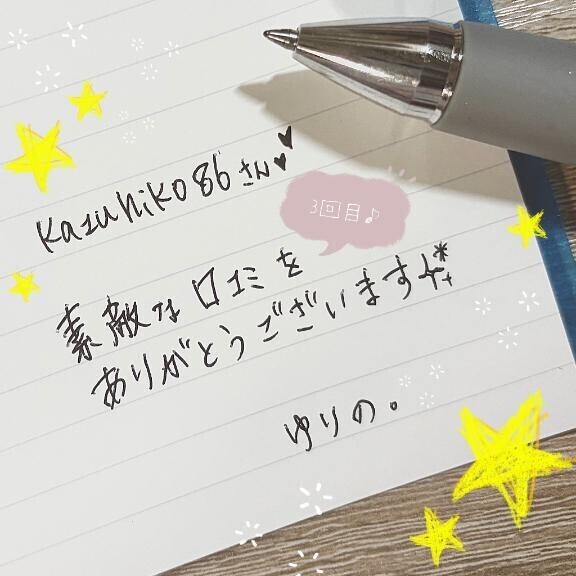 Kazuhiko86さん♥♥
3回目♪
素敵な口コミを
ありがとうございます
ゆりの。